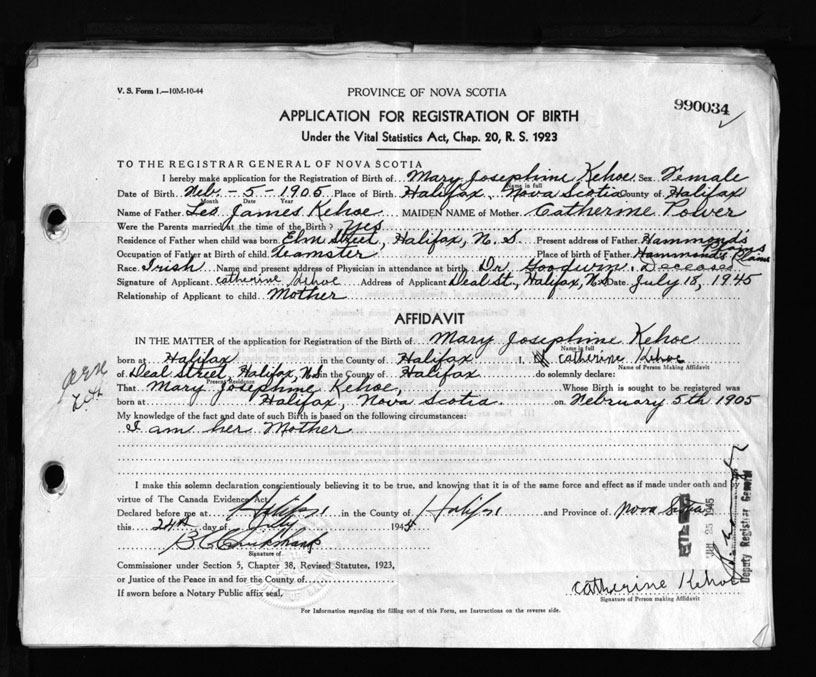 V. S. Form 1.—10M-10-44
PROVINCE OF NOVA SCOTIA
990034
APPLICATION FOR REGISTRATION OF BIRTH
Under the Vital Statistics Act, Chap. 20, R. S. 1923
TO THE REGISTRAR GENERAL OF NOVA SCOTIA
I hereby make application for the Registration of Birth of Mary Josephine Kehoe Sex Female
Name in full
Date of Birth Feb. - 5 - 1905 Place of Birth Halifax, Nova Scotia County of Halifax
Month Date Year
Name of Father Leo James Kehoe MAIDEN NAME of Mother Catherine Power
Were the Parents married at the time of the Birth? Yes
Residence of Father when child was born Elm Street, Halifax, N. S. Present address of Father Hammonds Plains
Occupation of Father at Birth of child Teamster Place of birth of Father Hammonds Plains
Race Irish Name and present address of Physician in attendance at birth Dr. Goodwin. Deceased
Signature of Applicant catherine Kehoe Address of Applicant Deal St., Halifax, N.S. Date July 18, 1945
Relationship of Applicant to child Mother
AFFIDAVIT
IN THE MATTER of the application for Registration of the Birth of Mary Josephine Kehoe
Name in full
born at Halifax in the County of Halifax I, catherine Kehoe
Name of Person Making Affidavit
of Deal Street, Halifax, N.S. in the County of Halifax do solemnly declare:
Present Residence
That Mary Josephine Kehoe, Whose Birth is sought to be registered was
born at Halifax, Nova Scotia. on February 5th 1905
My knowledge of the fact and date of such Birth is based on the following circumstances:
I am her Mother
I make this solemn declaration conscientiously believing it to be true, and knowing that it is of the same force and effect as if made under oath and by
virtue of The Canada Evidence Act.
Declared before me at Halifax in the County of Halifax and Province of Nova Scotia
this 24th day of July 1945
Signature of
Commissioner under Section 5, Chapter 38, Revised Statutes, 1923,
or Justice of the Peace in and for the County of
If sworn before a Notary Public affix seal.
catherine Kehoe
Signature of Person making Affidavit
For Information regarding the filling out of this Form, see Instructions on the reverse side.
FILED
JUL 25 1945
Deputy Registrar General